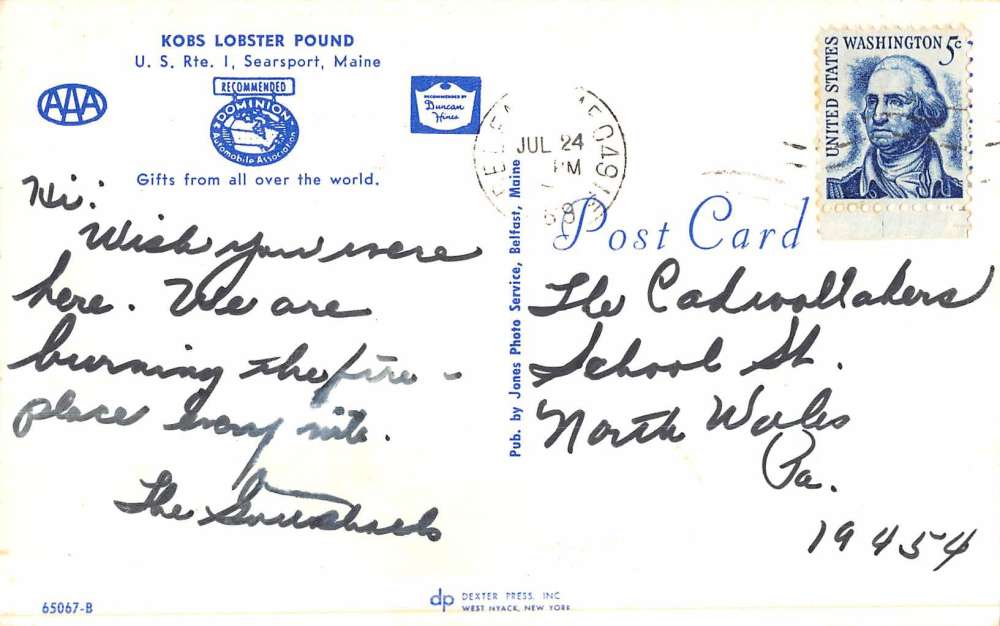 KOBS LOBSTER POUND
U. S. Rte. 1, Searsport, Maine
AAA
RECOMMENDED
DOMINION
Automobile Association
RECOMMENDED BY
Duncan
Hines
Gifts from all over the world.
Hi:
Wish you were
here. We are
burning the fire-
place every nite.
The
65067-B
Pub. by Jones Photo Service, Belfast, Maine
dp DEXTER PRESS, INC
WEST NYACK, NEW YORK
JUL 24
PM
UNITED STATES
WASHINGTON 5c
Post Card
The Cadwalladers
School St.
North Wales
Pa.
19454